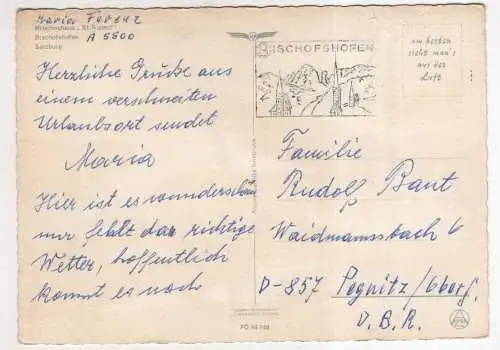 Maria Ferenz
Missionshaus „St. Rupert“
Bischofshofen A 5500
Salzburg
Herzliche Grüße aus
einem verschneiten
Urlaubsort sendet
Maria
Hier ist es wunderschön
nur fehlt das richtige
Wetter, hoffentlich
kommt es noch
BISCHOFSHOFEN
am besten
sieht man's
aus der
Luft
Familie
Rudolf Baut
Waidmannsbach 6
D-857 Pegnitz/Oberf.
V.B.R.